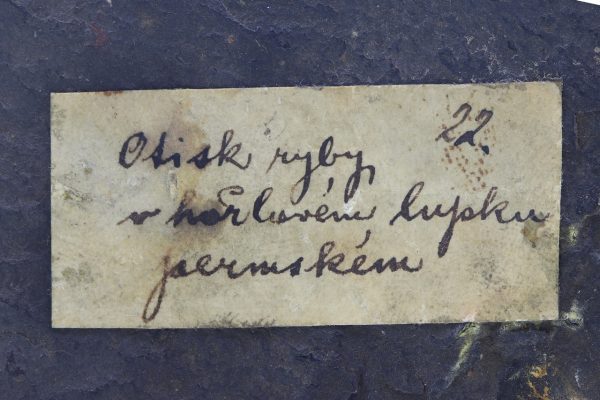 22.
Otisk ryby
v hořlavém lupku
permském